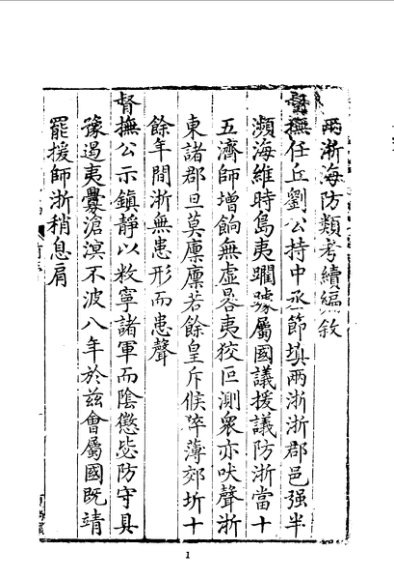 兩浙海防類考續編敘
督撫任丘劉公持中丞節填兩浙浙郡邑强半
瀕海維時島夷躪屬國議援議防浙當十
五濟師增餉無虛晷夷狡叵測衆亦吠聲浙
東諸郡旦莫廩廩若餘皇斥候猝薄郊圻十
餘年間浙無患形而患聲
督撫公示鎮靜以敉寧諸軍而陰懲毖防守具
豫遏夷釁滄溟不波八年於茲會屬國既靖
罷援師浙稍息肩
1